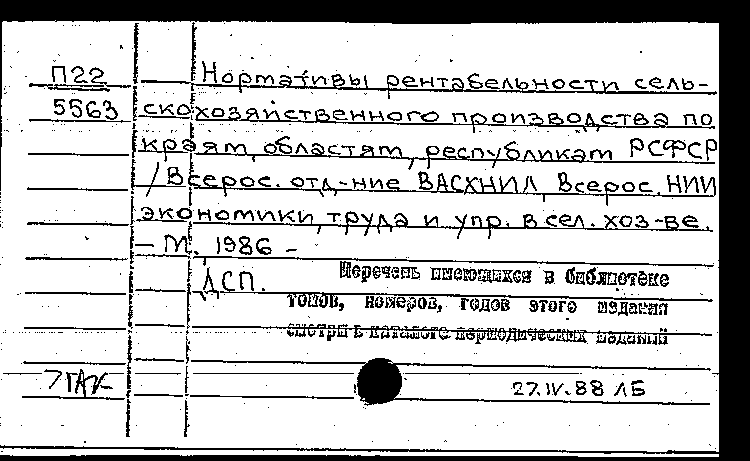 П22 Нормативы рентабельности сель-
5563 скохозяйственного производства по
краям, областям, республикам РСФСР
/ Всерос. отд-ние ВАСХНИЛ, Всерос. НИИ
экономики, труда и упр. в сел. хоз-ве.
– М., 1986 –
ДСП. Перечень имеющихся в библиотеке
томов, номеров, годов этого издания
смотри в каталоге периодических изданий
27.IV.88 ЛБ